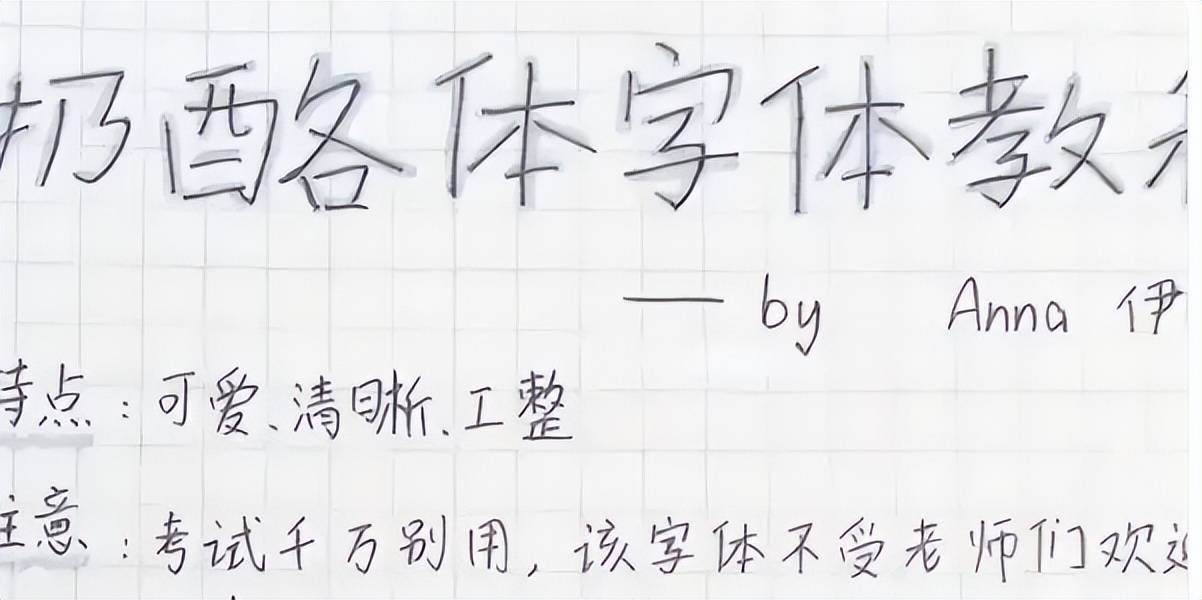 奶酪体字体教
—— by Anna 伊
特点：可爱、清晰、工整
注意：考试千万别用，该字体不受老师们欢迎